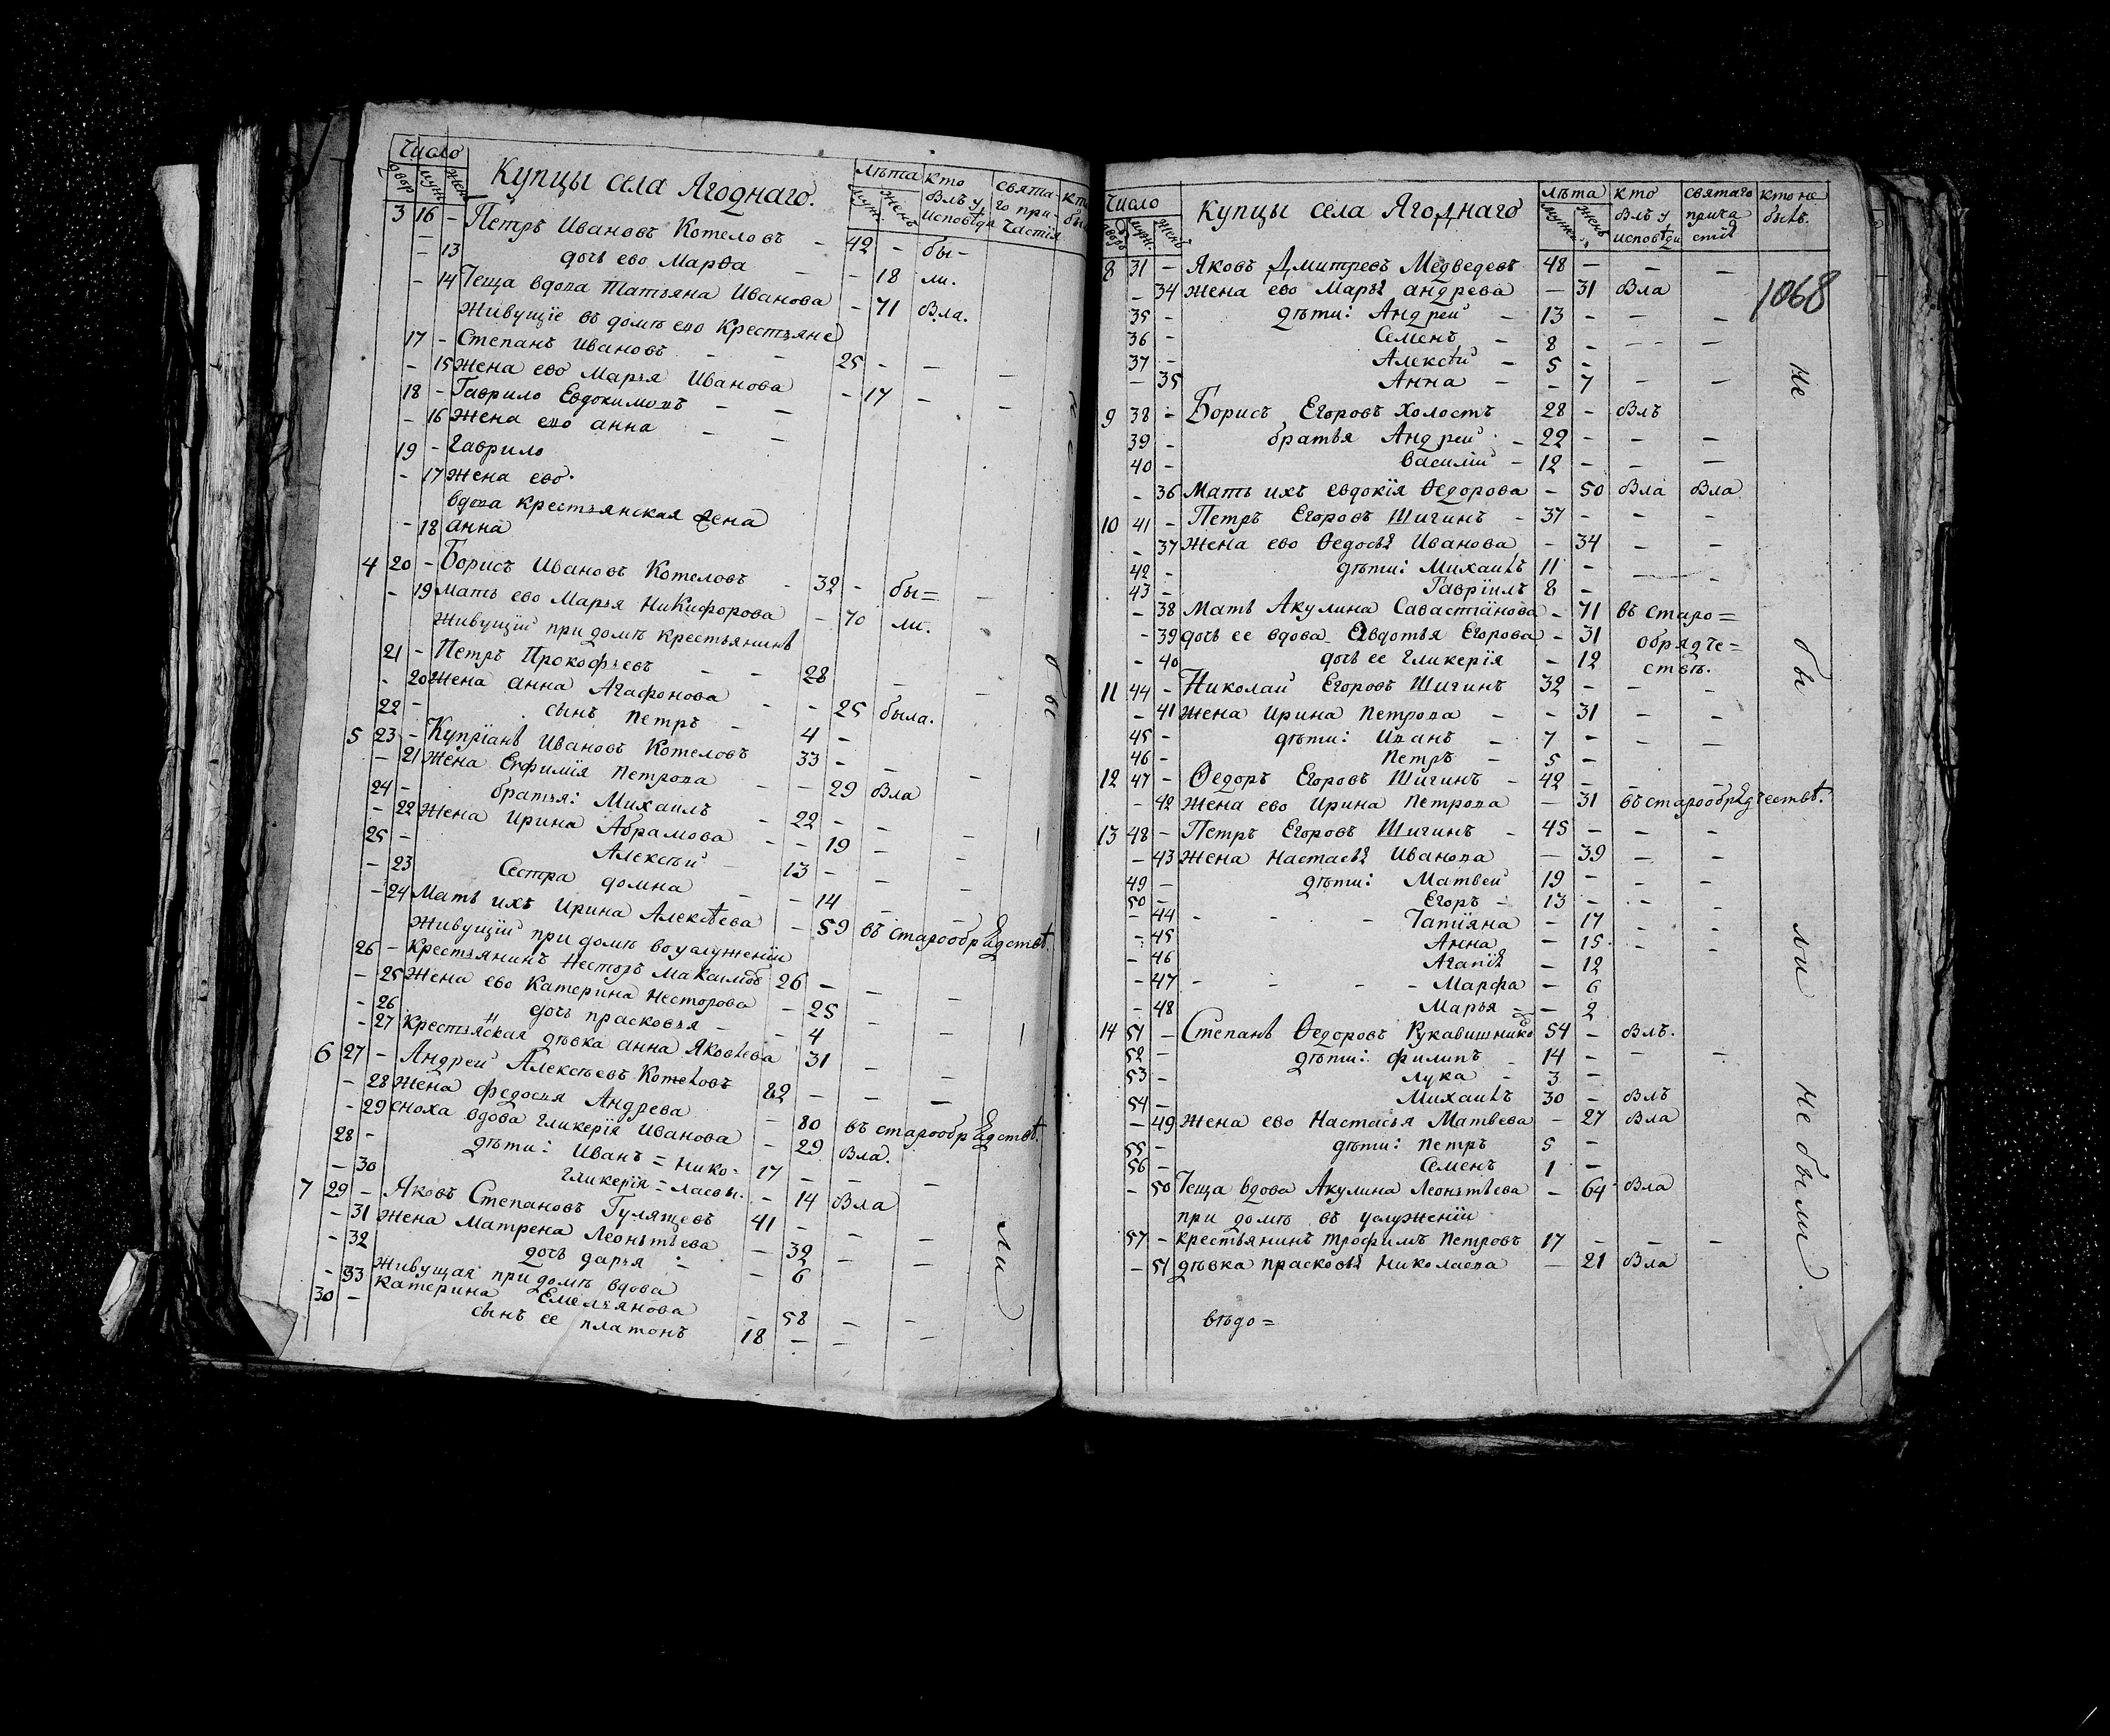 Число Купцы села Ягоднаго. лѣта кто святаго кто
двор муж жен муж женъ былъ у го при- бы
исповѣди частія
3 16 - Петръ Ивановъ Котеловъ - 42 - бы-
- 13 дочь ево Марѳа - - 18 ли.
- 14 Теща вдова Татьяна Иванова - 71 была.
Живущіе въ домѣ ево Крестьяне
17 - Степанъ Ивановъ - - 25 - - -
- 15 Жена ево Марья Иванова - 17 - -
18 - Гаврило Евдокимовъ - -
- 16 Жена ево анна - -
19 - Гаврило
- 17 Жена ево.
вдова крестьянская жена
- 18 Анна
4 20 - Борисъ Ивановъ Котеловъ - 32 - бы= -
- 19 Мать ево Марья Никифорова - 70 ли.
Живущій при домѣ крестьянинъ
21 - Петръ Прокофьевъ - - 28 - -
- 20 Жена анна Агафонова - - 25 была.
22 - сынъ Петръ - 4 -
5 23 - Купріанъ Ивановъ Котеловъ 33 - - -
- 21 Жена Евфимія Петрова - - 29 была
24 - братья: Михаилъ - 22 - - -
- 22 Жена Ирина Абрамова - - 19 - -
25 - Алексѣй - 13 - - -
- 23 Сестра домна - - 14 - -
- 24 Мать ихъ Ирина Алексѣева - 59 въ старообрядствѣ.
Живущій при домѣ воуслуженіи
26 - Крестьянинъ Несторъ Максимовъ 26 - - -
- 25 Жена ево Катерина Несторова - 25 - -
- 26 дочь прасковья - - 4
- 27 Крестьянская дѣвка анна Яковлева 31 - -
6 27 - Андрей Алексѣевъ Котеловъ 82 - - -
- 28 Жена федосья Андрева - 80 въ старообрядствѣ.
- 29 сноха вдова гликерія Иванова - 29 была.
28 - дѣти: Иванъ = Нико- 17 - - -
- 30 гликерія = лаевы. - 14 была
7 29 - Яковъ Степановъ Гулящевъ 41 - - -
- 31 Жена Матрена Леонтьева - 32 - -
- 32 дочь дарья - - 6
Живущая при домѣ вдова
- 33 Катерина Емельянова - 58 - -
30 - сынъ ее платонъ 18 - - -
не
бы
ли
Число Купцы села Ягоднаго лѣта кто святаго кто не
дворъ муж. женъ мужъ женъ былъ у прича былъ.
исповѣди стія
1068
8 31 - Яковъ Дмитревъ Медведевъ 48 - - -
- 34 жена ево Марья андрева - 31 была
35 - дѣти: Андрей - 13 - - -
36 - Семенъ - 8 - - - -
37 - Алексѣй - 5 -
- 35 Анна - - 7 - -
9 38 - Борисъ Егоровъ холостъ 28 - былъ
39 - братья Андрей - 22 - - -
40 - Василій - 12 - - -
- 36 Мать ихъ евдокія Ѳедорова - 50 была была
10 41 - Петръ Егоровъ Шигинъ - 37 - - -
- 37 Жена ево Ѳедосья Иванова - 34 - -
42 - дѣти: Михаилъ 11 - - -
43 - Гавріилъ 8 -
- 38 Мать Акулина Савастіанова - 71 въ старо=
- 39 дочь ее вдова Евдотья Егорова - 31 обрядче=
- 40 дочь ее гликерія - 12 ствѣ.
11 44 - Николай Егоровъ Шигинъ 32 - - -
- 41 Жена Ирина Петрова - - 31 - -
45 - дѣти: Иванъ - 7 - - -
46 - Петръ - 5 -
12 47 - Ѳедоръ Егоровъ Шигинъ - 42 - - -
- 42 Жена ево Ирина Петрова - 31 въ старообрядчествѣ.
13 48 - Петръ Егоровъ Шигинъ - 45 - - -
- 43 Жена Настасья Иванова - 39 - -
49 - дѣти: Матвей 19 - - -
50 - Егоръ - 13 - - -
- 44 - - - Татіяна - 17 - -
- 45 Анна - 15 - -
- 46 Агапія - 12
- 47 - - - - Марфа - 6
- 48 Марья - 2
14 51 - Степанъ Ѳедоровъ Рукавишнико 54 - былъ.
52 - дѣти: филипъ - 14 - - -
53 - лука - 3 -
54 - Михаилъ 30 - былъ
- 49 Жена ево Настасья Матвева - 27 была
55 - дѣти: петръ 5 -
56 - Семенъ 1 -
- 50 Теща вдова Акулина Леонтьева - 64 была
при домѣ въ услуженіи
57 - крестьянинъ трофимъ Петровъ 17 - - -
- 51 дѣвка прасковья Николаева - 21 была
не
бы
ли
не были.
вѣдо=